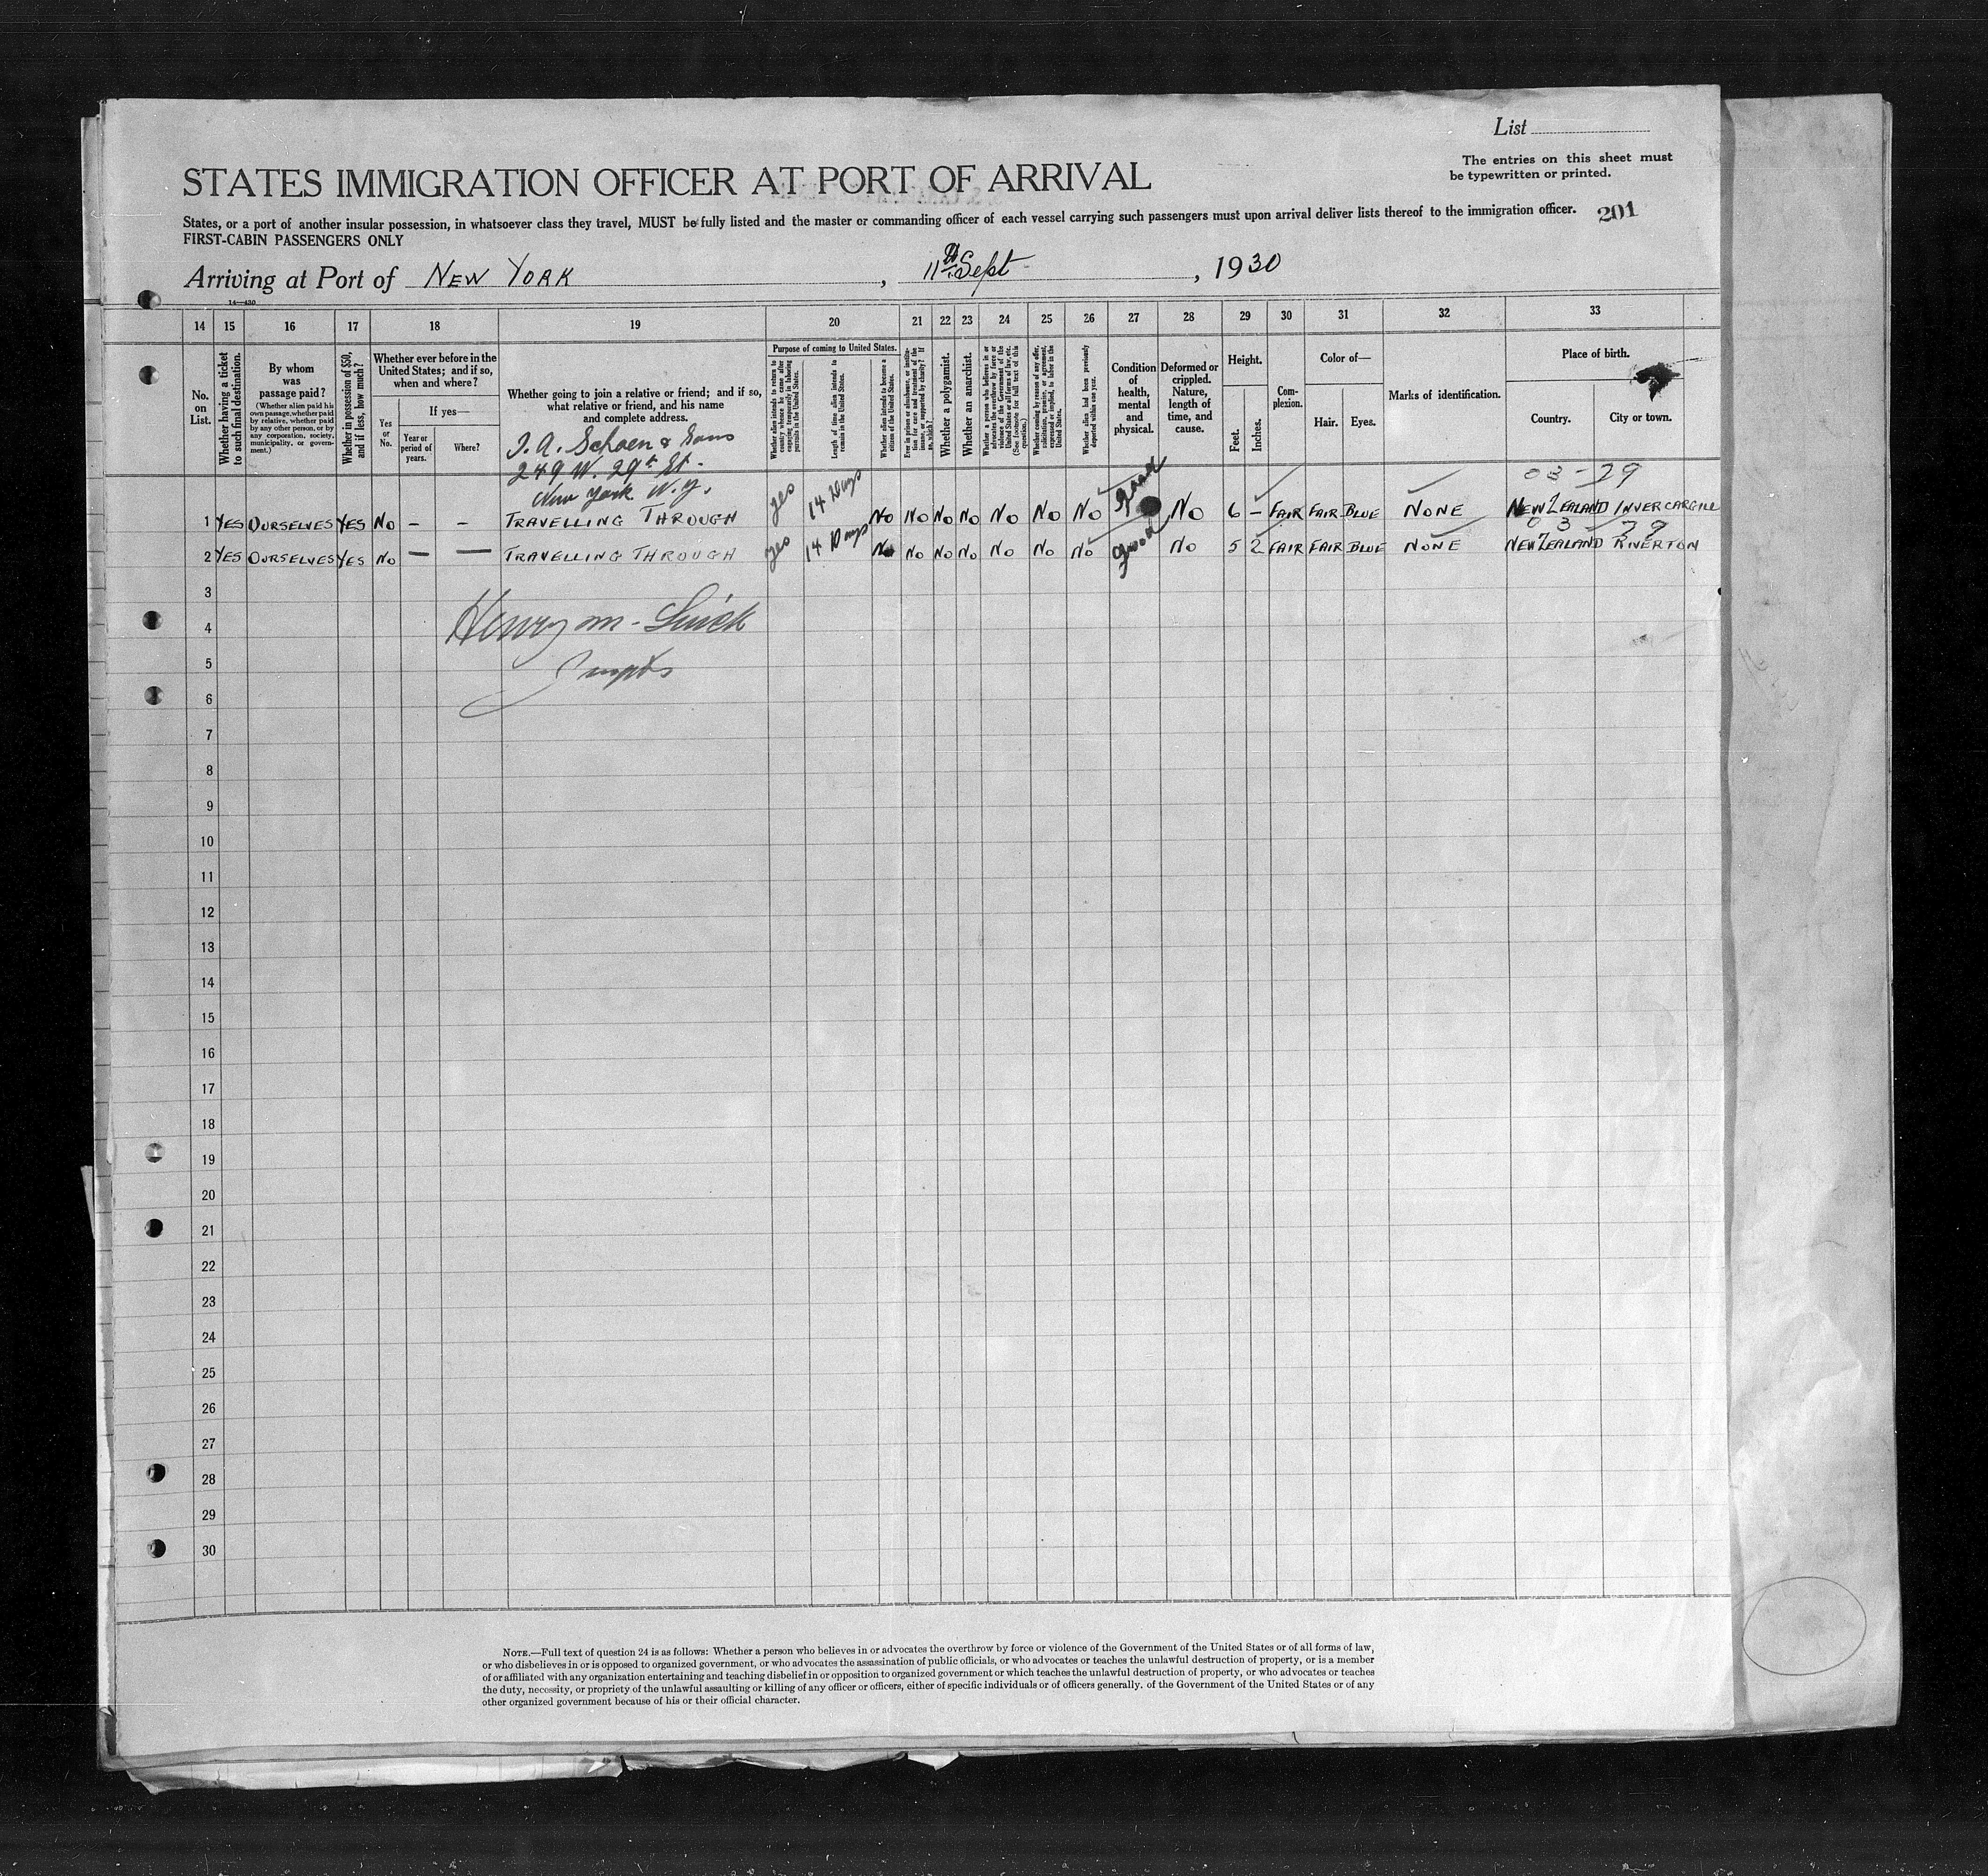 List
The entries on this sheet must
be typewritten or printed.
STATES IMMIGRATION OFFICER AT PORT OF ARRIVAL
States, or a port of another insular possession, in whatsoever class they travel, MUST be fully listed and the master or commanding officer of each vessel carrying such passengers must upon arrival deliver lists thereof to the immigration officer.
201
FIRST-CABIN PASSENGERS ONLY
Arriving at Port of NEW YORK, 11th Sept, 1930
14—430
14 15 16 17 18 19 20 21 22 23 24 25 26 27 28 29 30 31 32 33
No. on List.
Whether having a ticket to such final destination.
By whom was passage paid?
(Whether alien paid his own passage, whether paid by relative, whether paid by any other person, or by any corporation, society, municipality, or government.)
Whether in possession of $50, and if less, how much?
Whether ever before in the United States; and if so, when and where?
Yes or No.
If yes—
Year or period of years.
Where?
Whether going to join a relative or friend; and if so, what relative or friend, and his name and complete address.
Purpose of coming to United States.
Whether alien intends to return to country whence he came after engaging temporarily in laboring pursuits in the United States.
Length of time alien intends to remain in the United States.
Whether alien intends to become a citizen of the United States.
Ever in prison or almshouse, or institution for care and treatment of the insane, or supported by charity? If so, which?
Whether a polygamist.
Whether an anarchist.
Whether a person who believes in or advocates the overthrow by force or violence of the Government of the United States or all forms of law, etc. (See footnote for full text of this question.)
Whether coming by reason of any offer, solicitation, promise, or agreement, expressed or implied, to labor in the United States.
Whether alien had been previously deported within one year.
Condition of health, mental and physical.
Deformed or crippled. Nature, length of time, and cause.
Height.
Feet.
Inches.
Complexion.
Color of—
Hair.
Eyes.
Marks of identification.
Place of birth.
Country.
City or town.
J. A. Schoen & Sons
249 W. 29th St.
New York N.Y.
03 - 29
1 YES OURSELVES YES NO - - TRAVELLING THROUGH yes 14 Days No No No No No No No good No 6 - FAIR FAIR BLUE NONE NEW ZEALAND INVERCARGILL
03 - 29
2 YES OURSELVES YES NO — — TRAVELLING THROUGH yes 14 Days No No No No No No No good No 5 2 FAIR FAIR BLUE NONE NEW ZEALAND RIVERTON
3
Henry M.
4
5
6
7
8
9
10
11
12
13
14
15
16
17
18
19
20
21
22
23
24
25
26
27
28
29
30
NOTE.—Full text of question 24 is as follows: Whether a person who believes in or advocates the overthrow by force or violence of the Government of the United States or of all forms of law,
or who disbelieves in or is opposed to organized government, or who advocates the assassination of public officials, or who advocates or teaches the unlawful destruction of property, or is a member
of or affiliated with any organization entertaining and teaching disbelief in or opposition to organized government or which teaches the unlawful destruction of property, or who advocates or teaches
the duty, necessity, or propriety of the unlawful assaulting or killing of any officer or officers, either of specific individuals or of officers generally. of the Government of the United States or of any
other organized government because of his or their official character.